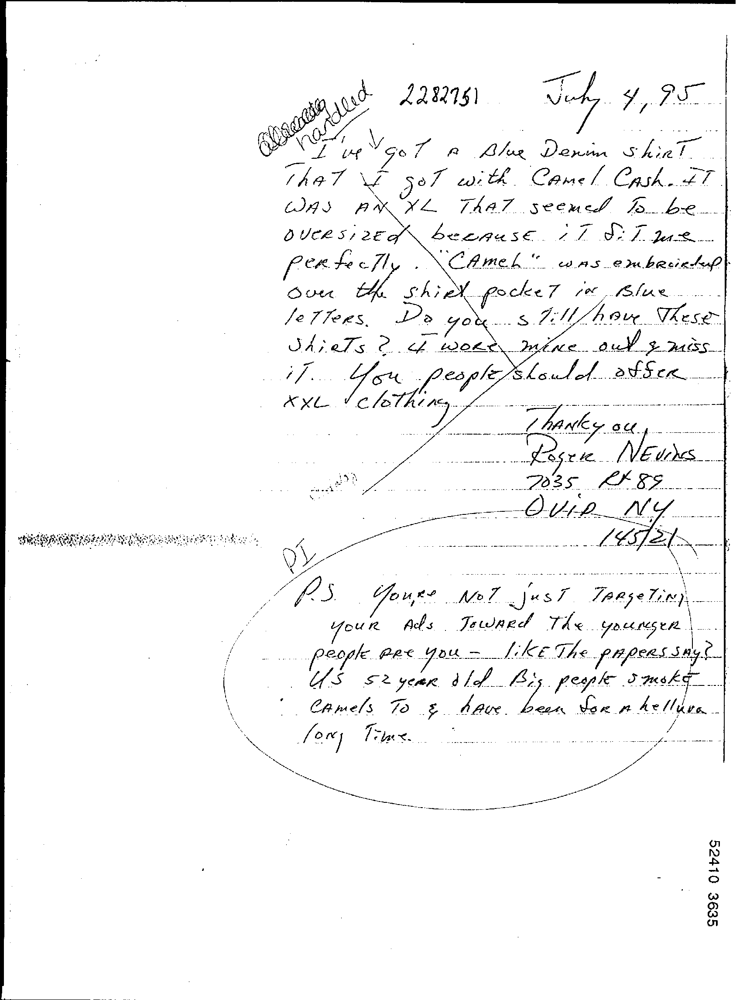 handled 2282751 July 4, 95
I've got A Blue Denim shirt
That I got with Camel Cash. It
was AN XL That seemed To be
oversized because it fit me
perfectly. "CAMEL" was embroirded
over the shirt pocket in Blue
letters. Do you still have These
shirts? I wore mine out & miss
it. You people should offer
XXL clothing
Thank you,
Roger Nevins
7035 Rt 89
Ovid NY
14521
PI
P.S. You're Not just Targeting
your Ads Toward The younger
people are you - like The papers say?
US 52 year old Big people smoke
Camels To & have been for A helluva
long Time.
52410 3635